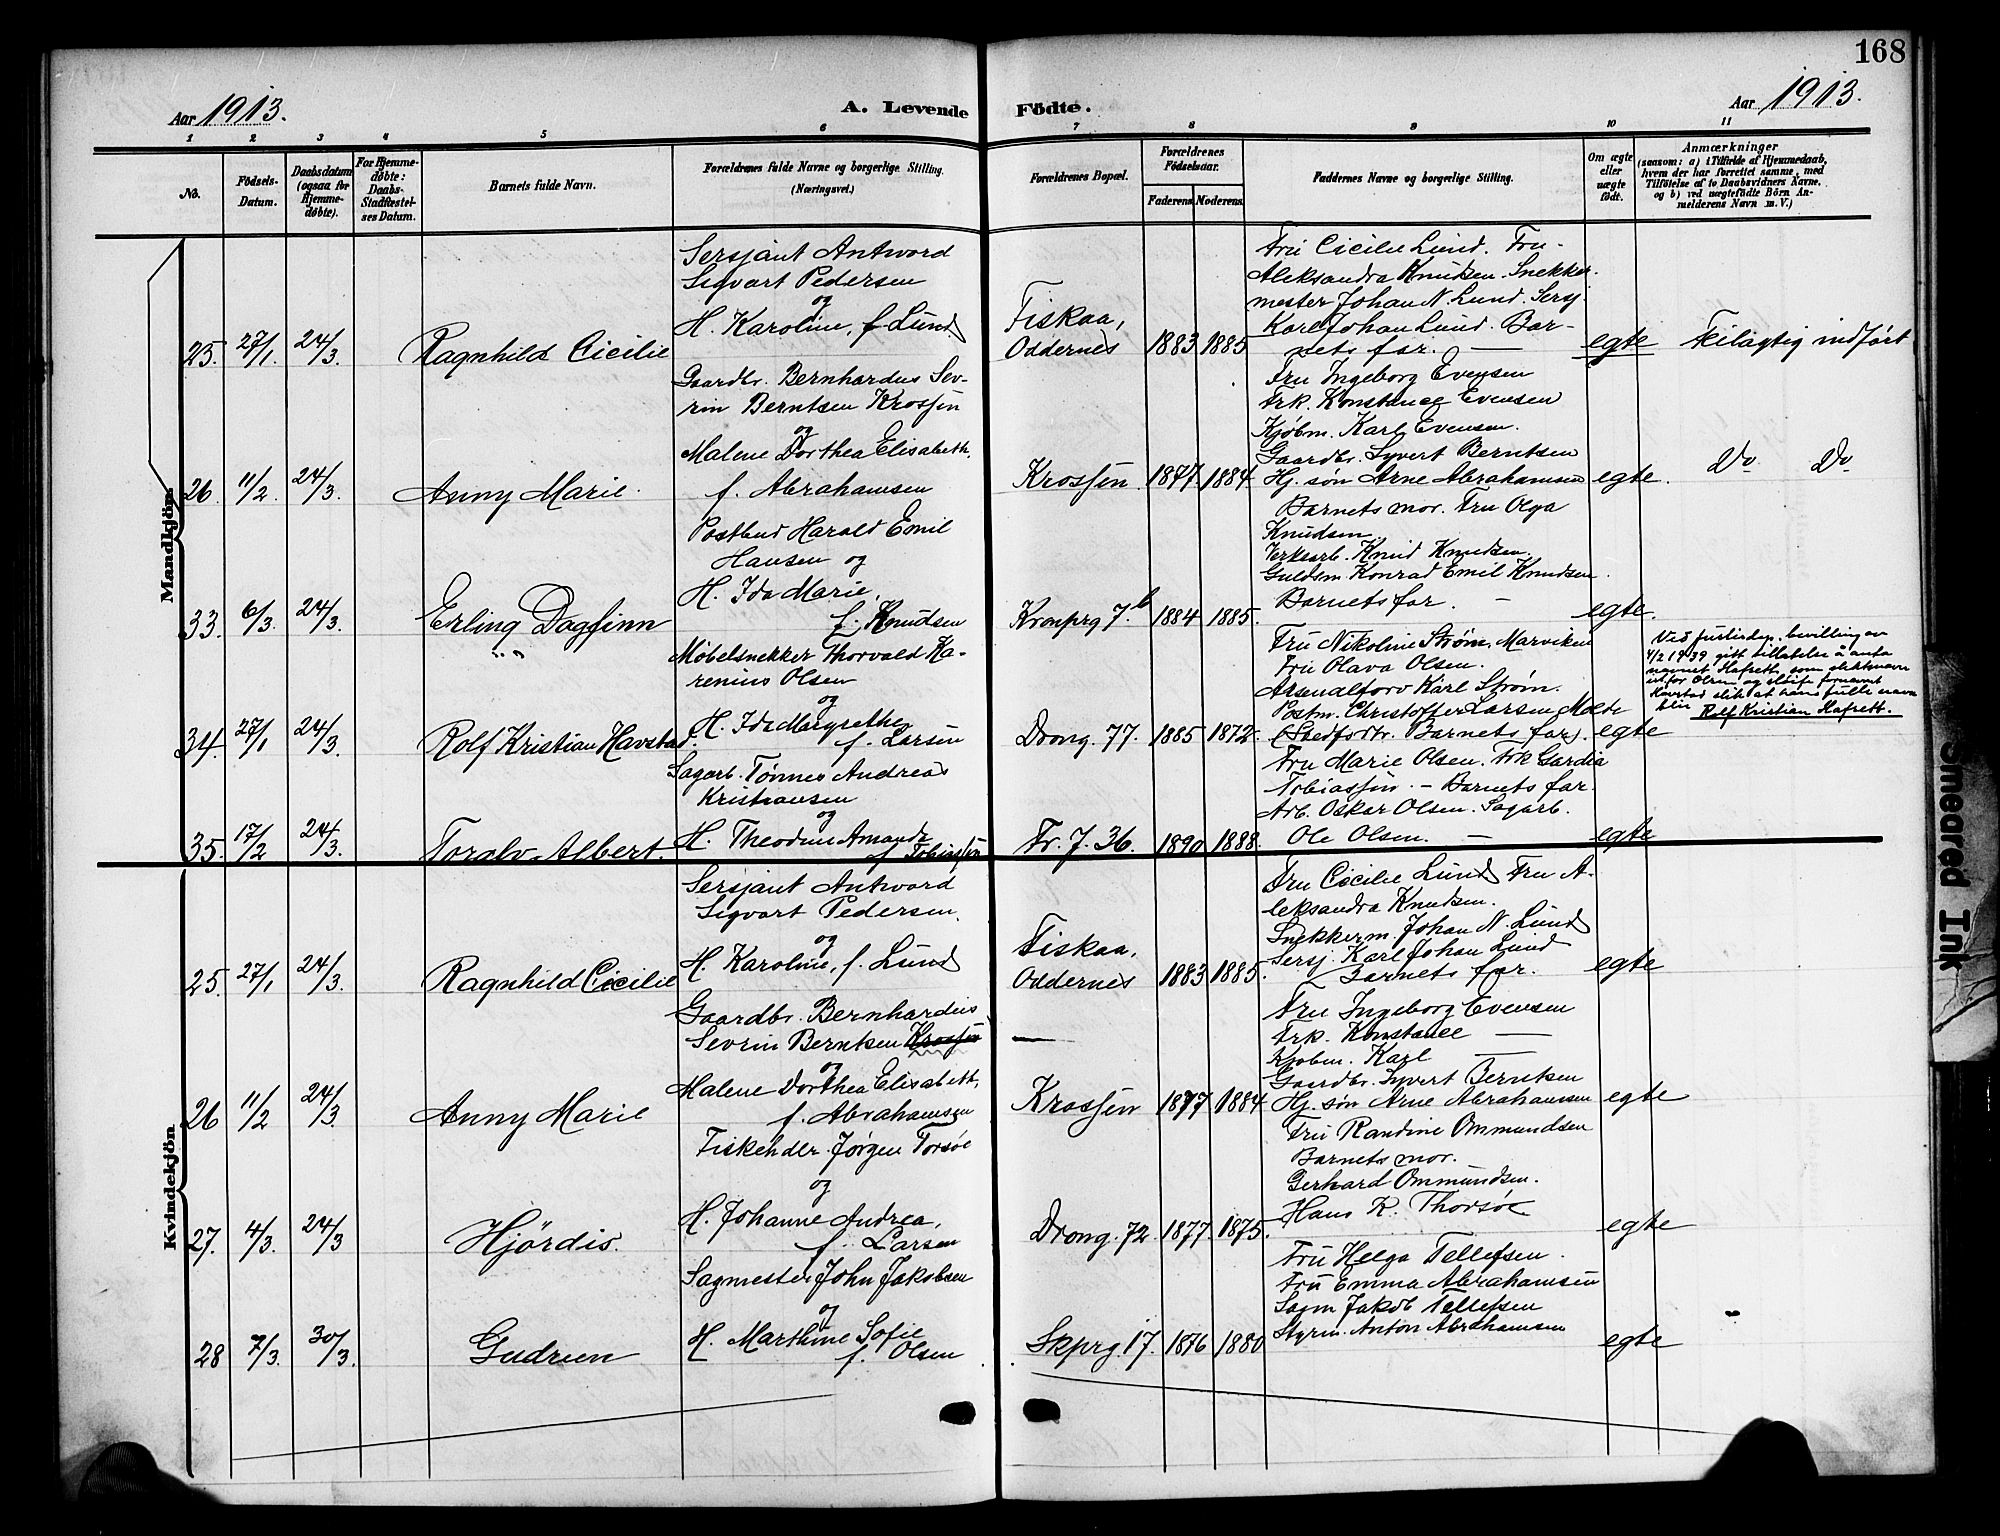 168
Aar 1913.
A. Levende Födte.
Aar 1913.
1 2 3 4 5 6 7 8 9 10 11
No.
Födsels-
Datum.
Daabsdatum
(ogsaa for
Hjemme-
døbte).
For Hjemme-
døbte:
Daabs-
Stadfæstel-
ses Datum.
Barnets fulde Navn.
Forældrenes fulde Navne og borgerlige Stilling.
(Næringsvei.)
Forældrenes Bopæl.
Forældrenes
Fødselsaar.
Faderens Moderens
Faddernes Navne og borgerlige Stilling.
Om ægte
eller
uægte
født.
Anmærkninger
(saasom: a) i Tilfælde af Hjemmedaab,
hvem der har forrettet samme, med
Tilføielse af to Daabsvidners Navne,
og b) ved uægtefødte Börn An-
melderens Navn m. V.)
Mandkjön
25. 27/1 24/3 Ragnhild Cicilie
Sersjant Antword
Sigvart Pedersen
og
H. Karoline, f. Lund
Fiskaa,
Oddernes 1883 1885
Fru Cicilie Lund. Fru
Aleksandra Knudsen. Snekker-
mester Johan N. Lund. Sersj.
Karl Johan Lund. Bar-
nets far. —
egte Feilagtig indført
26. 11/2 24/3. Anny Marie.
Gaardbr. Bernhardus Sev-
rin Berntsen Krossen
og
Malene Dorthea Elisabeth.
f. Abrahamsen
Krossen 1877 1884
Fru Ingeborg Evensen
Frk. Konstance Evensen
Kjøbm. Karl Evensen.
Gaardbr. Syvert Berntsen
Hj. søn Arne Abrahamsen
egte. Do Do
33. 6/3. 24/3. Erling Dagfinn
Postbud Harald Emil
Hansen og
H. Ida Marie,
f. Knudsen
Kronprg 7.b 1884 1885.
Barnets mor. Fru Olga
Knudsen
Verksarb. Knud Knudsen.
Guldsm. Konrad Emil Knudsen.
Barnets far. —
egte.
34. 27/1 24/3 Rolf Kristian Havstad.
Møbelsnekker Thorvald Ka-
renius Olsen
og
H. Ida Margrethe
f. Larsen
Drong. 77. 1885 1872.
Fru Nikoline Strøm. Marviken
Fru Olava Olsen.
Arsenalforv Karl Strøm.
Postm. Christoffer Larsen Molde
(Stedfortr. Barnets far).
egte
Ved justisdep. bevilling av
4/2 1939 gitt tillatelse å anta
navnet Hafsett som slektsnavn
istfor Olsen og sløife fornavnet
Havstad slik at hans fulle navn
blir Rolf Kristian Hafsett.
35. 17/2 24/3. Toralv Albert.
Sagarb. Tønnes Andreas
Kristiansen
og
H. Theodine Amanda
f. Tobiassen
Fr. J. 36. 1890 1888.
Fru Marie Olsen. Frk Gardia
Tobiassen. — Barnets far.
Arb. Oskar Olsen. Sagarb.
Ole Olsen. —
egte
Kvindekjön
25. 27/1 24/3. Ragnhild Cicilie
Sersjant Antword
Sigvart Pedersen.
og
H. Karoline, f. Lund
Fiskaa,
Oddernes 1883 1885.
Fru Cicilie Lund Fru A-
leksandra Knudsen.
Snekkerm. Johan N. Lund
Sersj. Karl Johan Lund
Barnets far.
egte
26 11/2 24/3. Anny Marie
Gaardbr. Bernhardus
Sevrin Berntsen Krossen
og
Malene Dorthea Elisabeth,
f. Abrahamsen
—
Krossen 1877 1884
Fru Ingeborg Evensen
Frk. Konstance —
Kjøbm. Karl —
Gaardbr. Syvert Berntsen
Hj. søn Arne Abrahamsen
egte
27. 4/3. 24/3 Hjördis.
Fiskehdlr. Jørgen Torsøe
og
H. Johanne Andrea,
f. Larsen
Drong. 72. 1877. 1875.
Fru Randine Ommundsen
Barnets mor.
Gerhard Ommundsen.
Hans K. Thorsøe
egte
28 7/3. 30/3. Gudrun
Sagmester John Jakobsen
og
H. Marthine Sofie
f. Olsen
Skprg. 17. 1876 1880
Fru Helga Tellefsen.
Fru Emma Abrahamsen
Sagm Jakob Tellefsen
Styrm. Anton Abrahamsen
egte
Smeared Ink